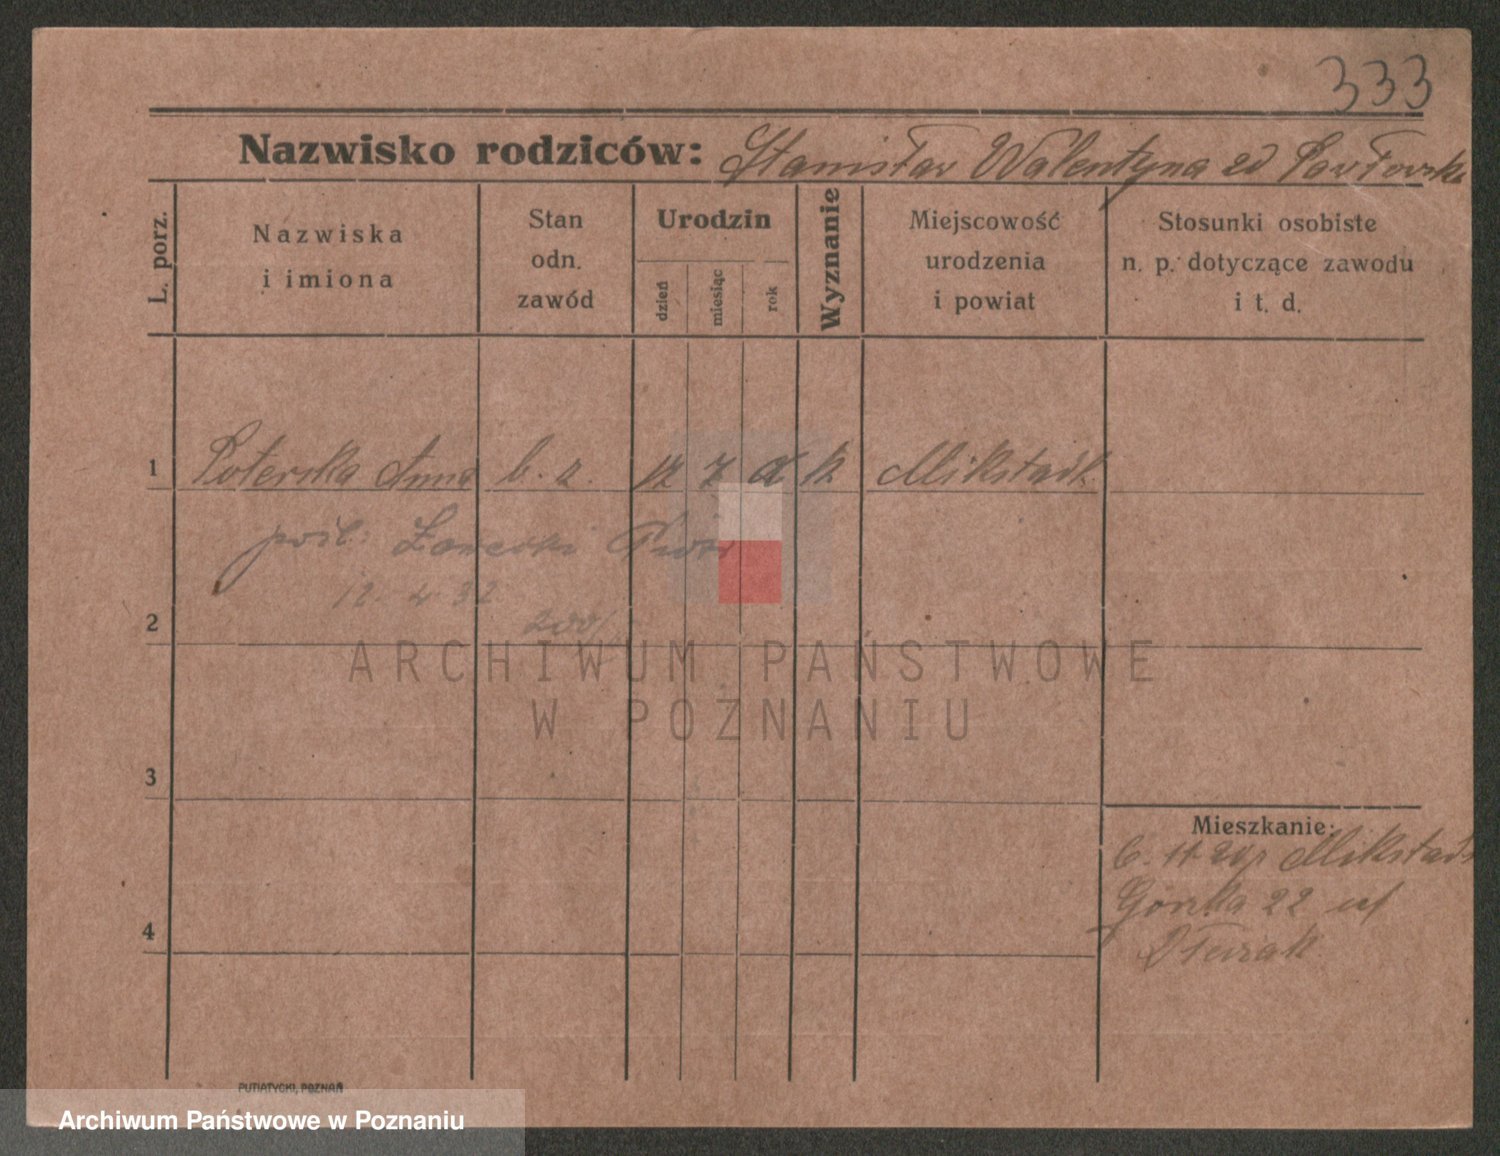 333
Nazwisko rodziców: Stanisław Walentyna zd Pawłowska
L. porz.
Nazwiska
i imiona
Stan
odn.
zawód
Urodzin
dzień
miesiąc
rok
Wyznanie
Miejscowość
urodzenia
i powiat
Stosunki osobiste
n. p. dotyczące zawodu
i t. d.
1 Poterska Anna b. z. 7 k Mikstadt
pośl:
12. 4. 32
2
ARCHIWUM PAŃSTWOWE
W POZNANIU
3
Mieszkanie:
Mikstadt
Górka 22
4
PUTIATYCKI, POZNAŃ
Archiwum Państwowe w Poznaniu